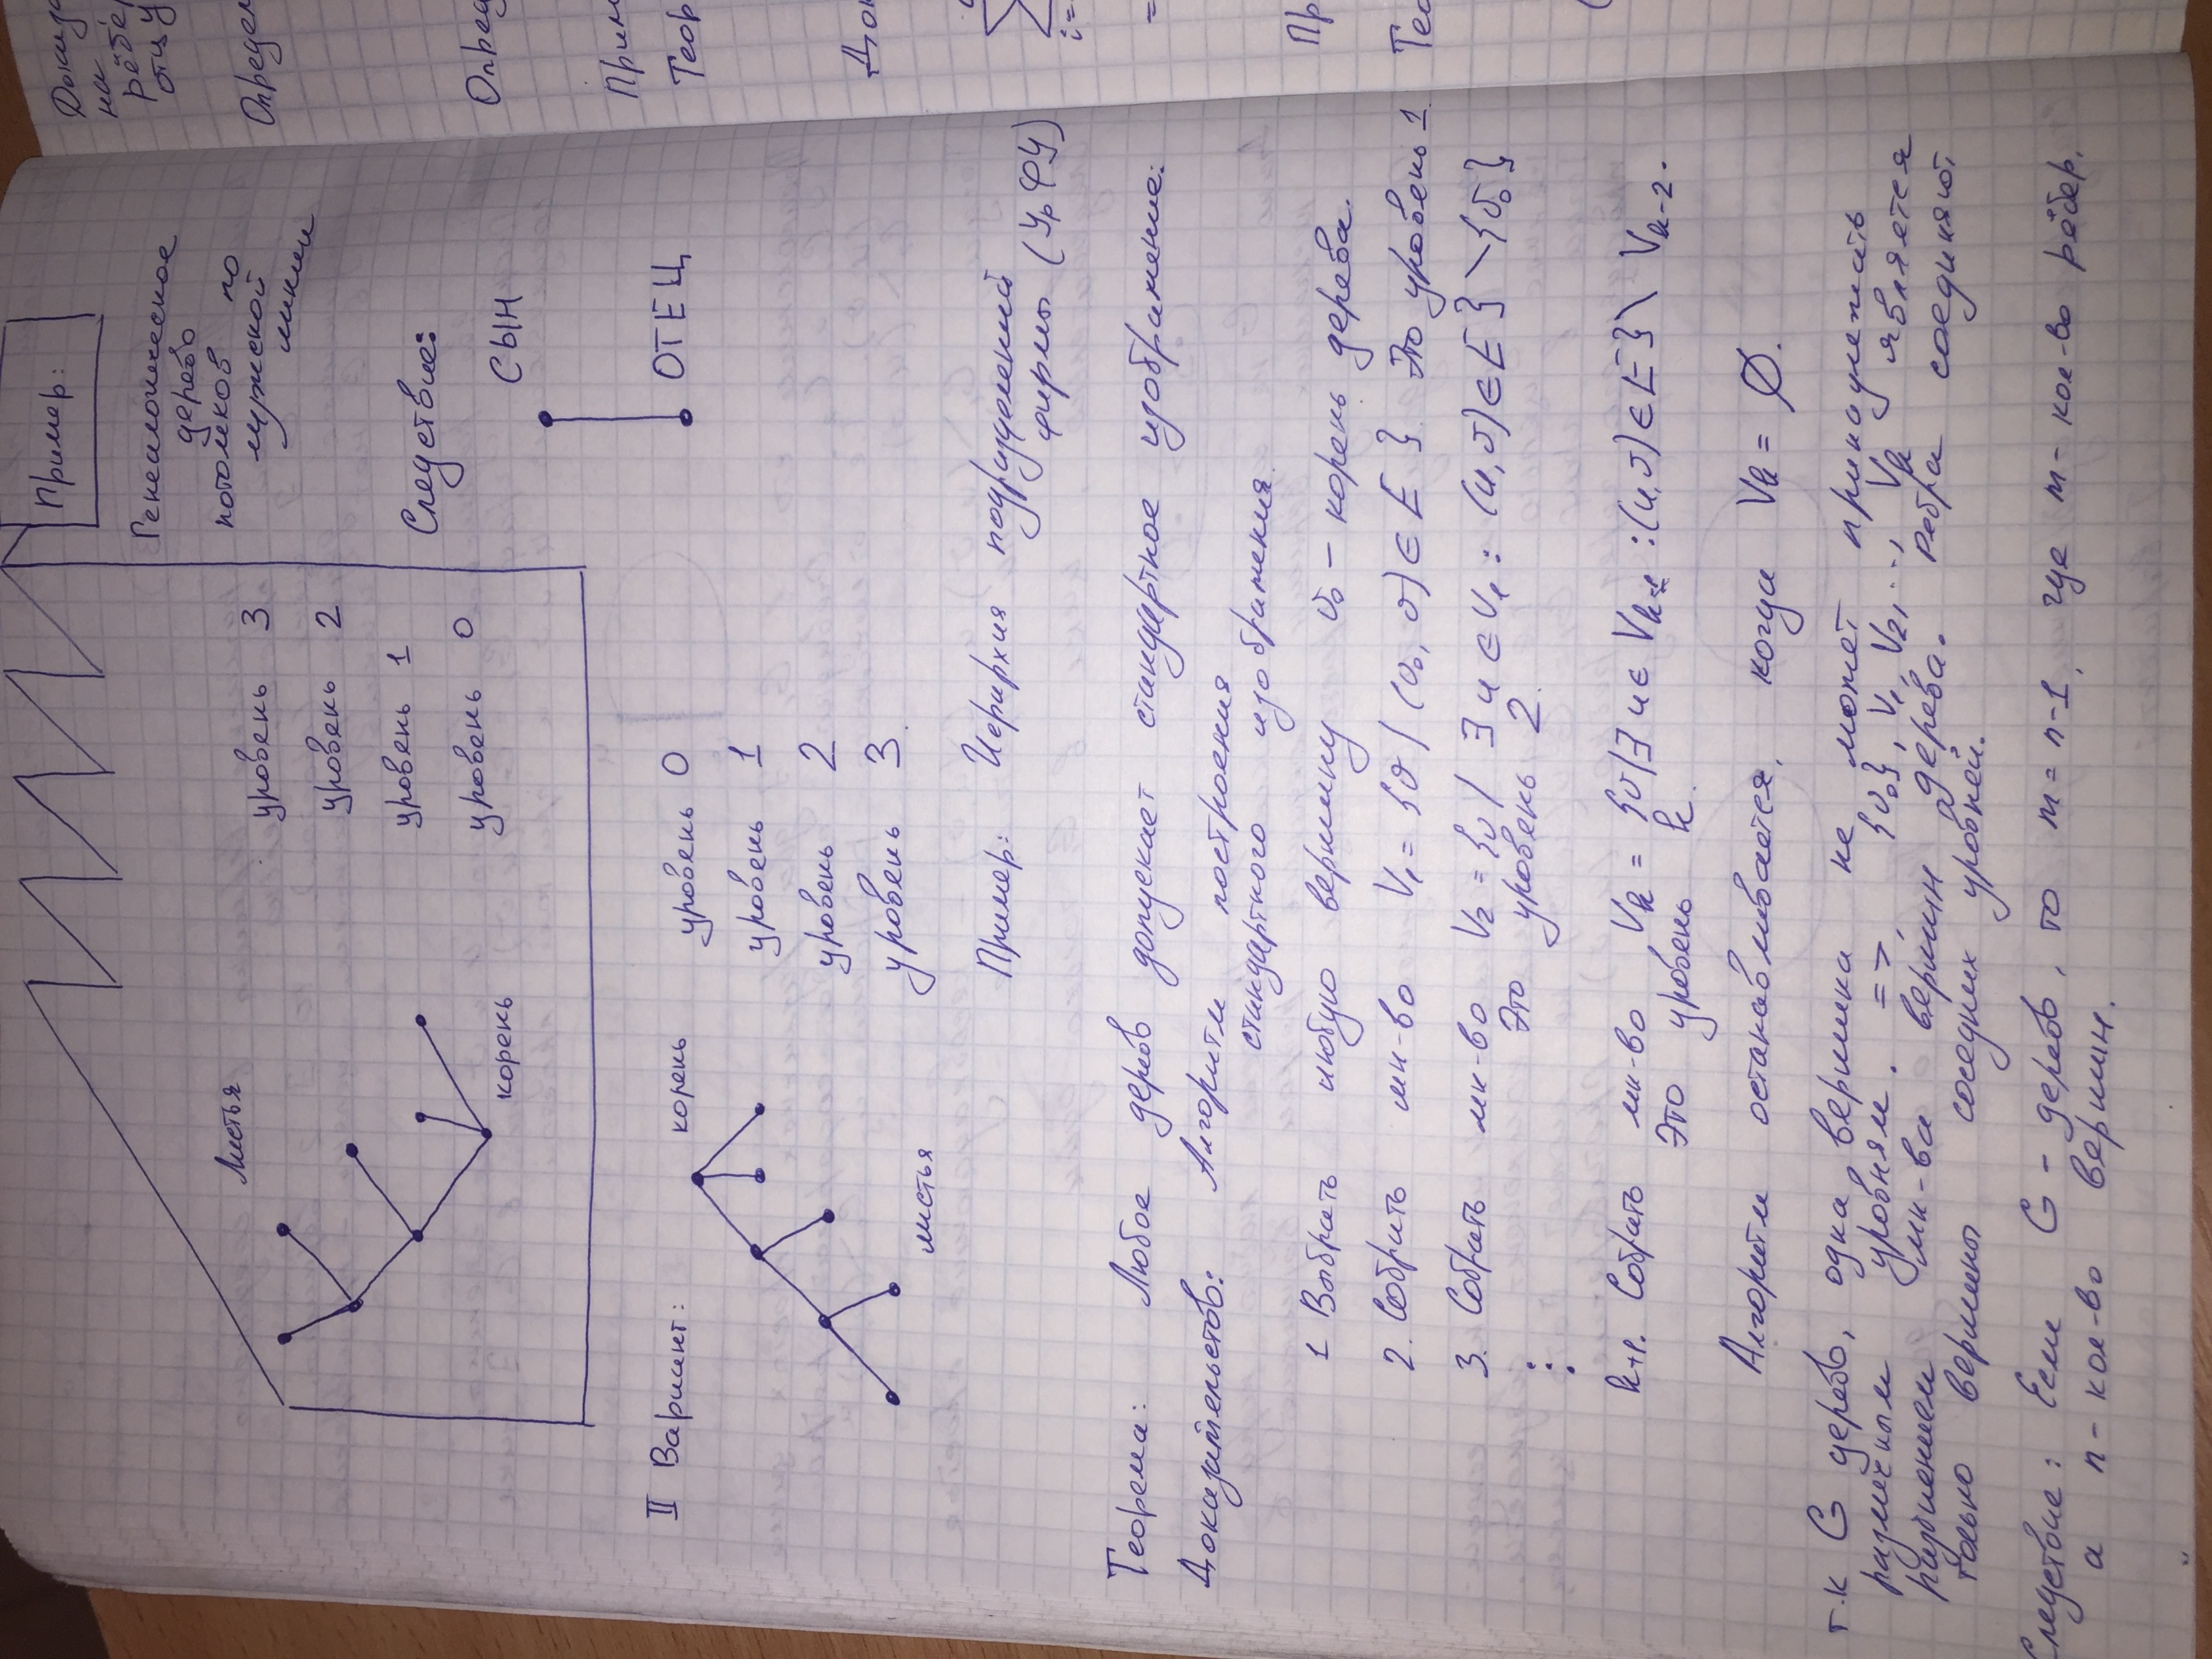 Пример:
Генеалогическое
дерево
потомков по
мужской
линии
Листья
уровень 3
уровень 2
уровень 1
уровень 0
корень
Следствие:
СЫН
ОТЕЦ
II Вариант:
корень
уровень 0
уровень 1
уровень 2
уровень 3.
листья
Пример: Иерархия подразделений
фирмы (УрФУ)
Теорема: Любое дерево допускает стандартное изображение:
Доказательство: Алгоритм построения
стандартного изображения.
1 Выбрать любую вершину v₀ – корень дерева.
2. Собрать мн-во V₁ = {v | (v₀, v) ∈ E }. Это уровень 1.
3. Собрать мн-во V₂ = {v | ∃ u ∈ V₁ : (u, v) ∈ E } \ {v₀}
Это уровень 2.
⋮
k+1. Собрать мн-во Vₖ = {v | ∃ u ∈ Vₖ₋₁ : (u, v) ∈ E } \ Vₖ₋₂.
Это уровень k.
Алгоритм останавливается, когда Vₖ = ∅.
т.к G дерево, одна вершина не может принадлежать
различным уровням. => {v₀}, V₁, V₂, ..., Vₖ является
разбиением мн-ва вершин дерева. Ребра соединяют
только вершины соседних уровней.
Следствие: Если G – дерево, то m = n-1, где m – кол-во рёбер,
а n – кол-во вершин.
на
отцу
i=
=